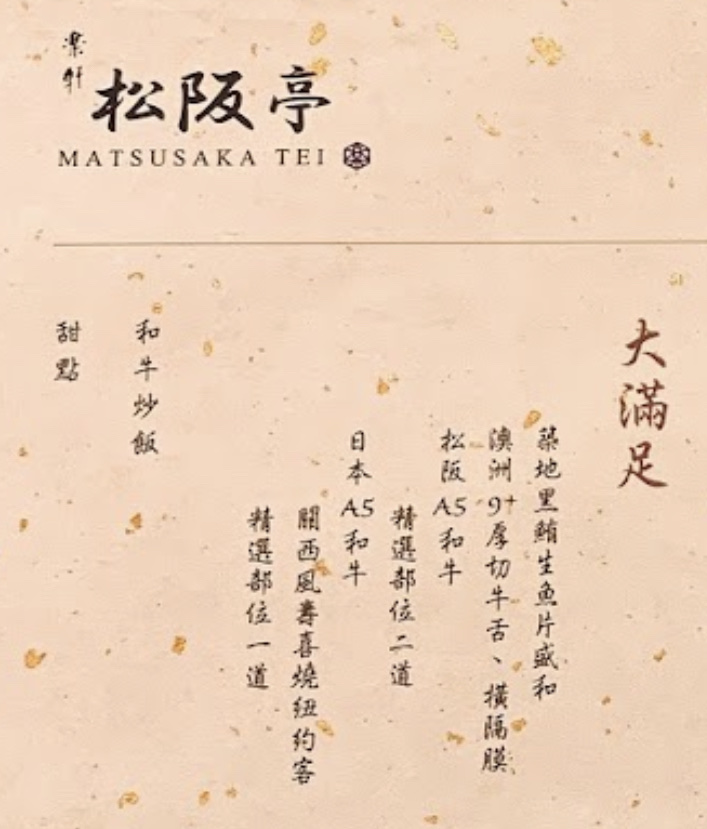 樂軒
松阪亭
MATSUSAKA TEI
大滿足
築地黑鮪生魚片盛和
澳洲9+厚切牛舌、橫隔膜
松阪A5和牛
精選部位二道
日本A5和牛
關西風壽喜燒紐約客
精選部位一道
和牛炒飯
甜點